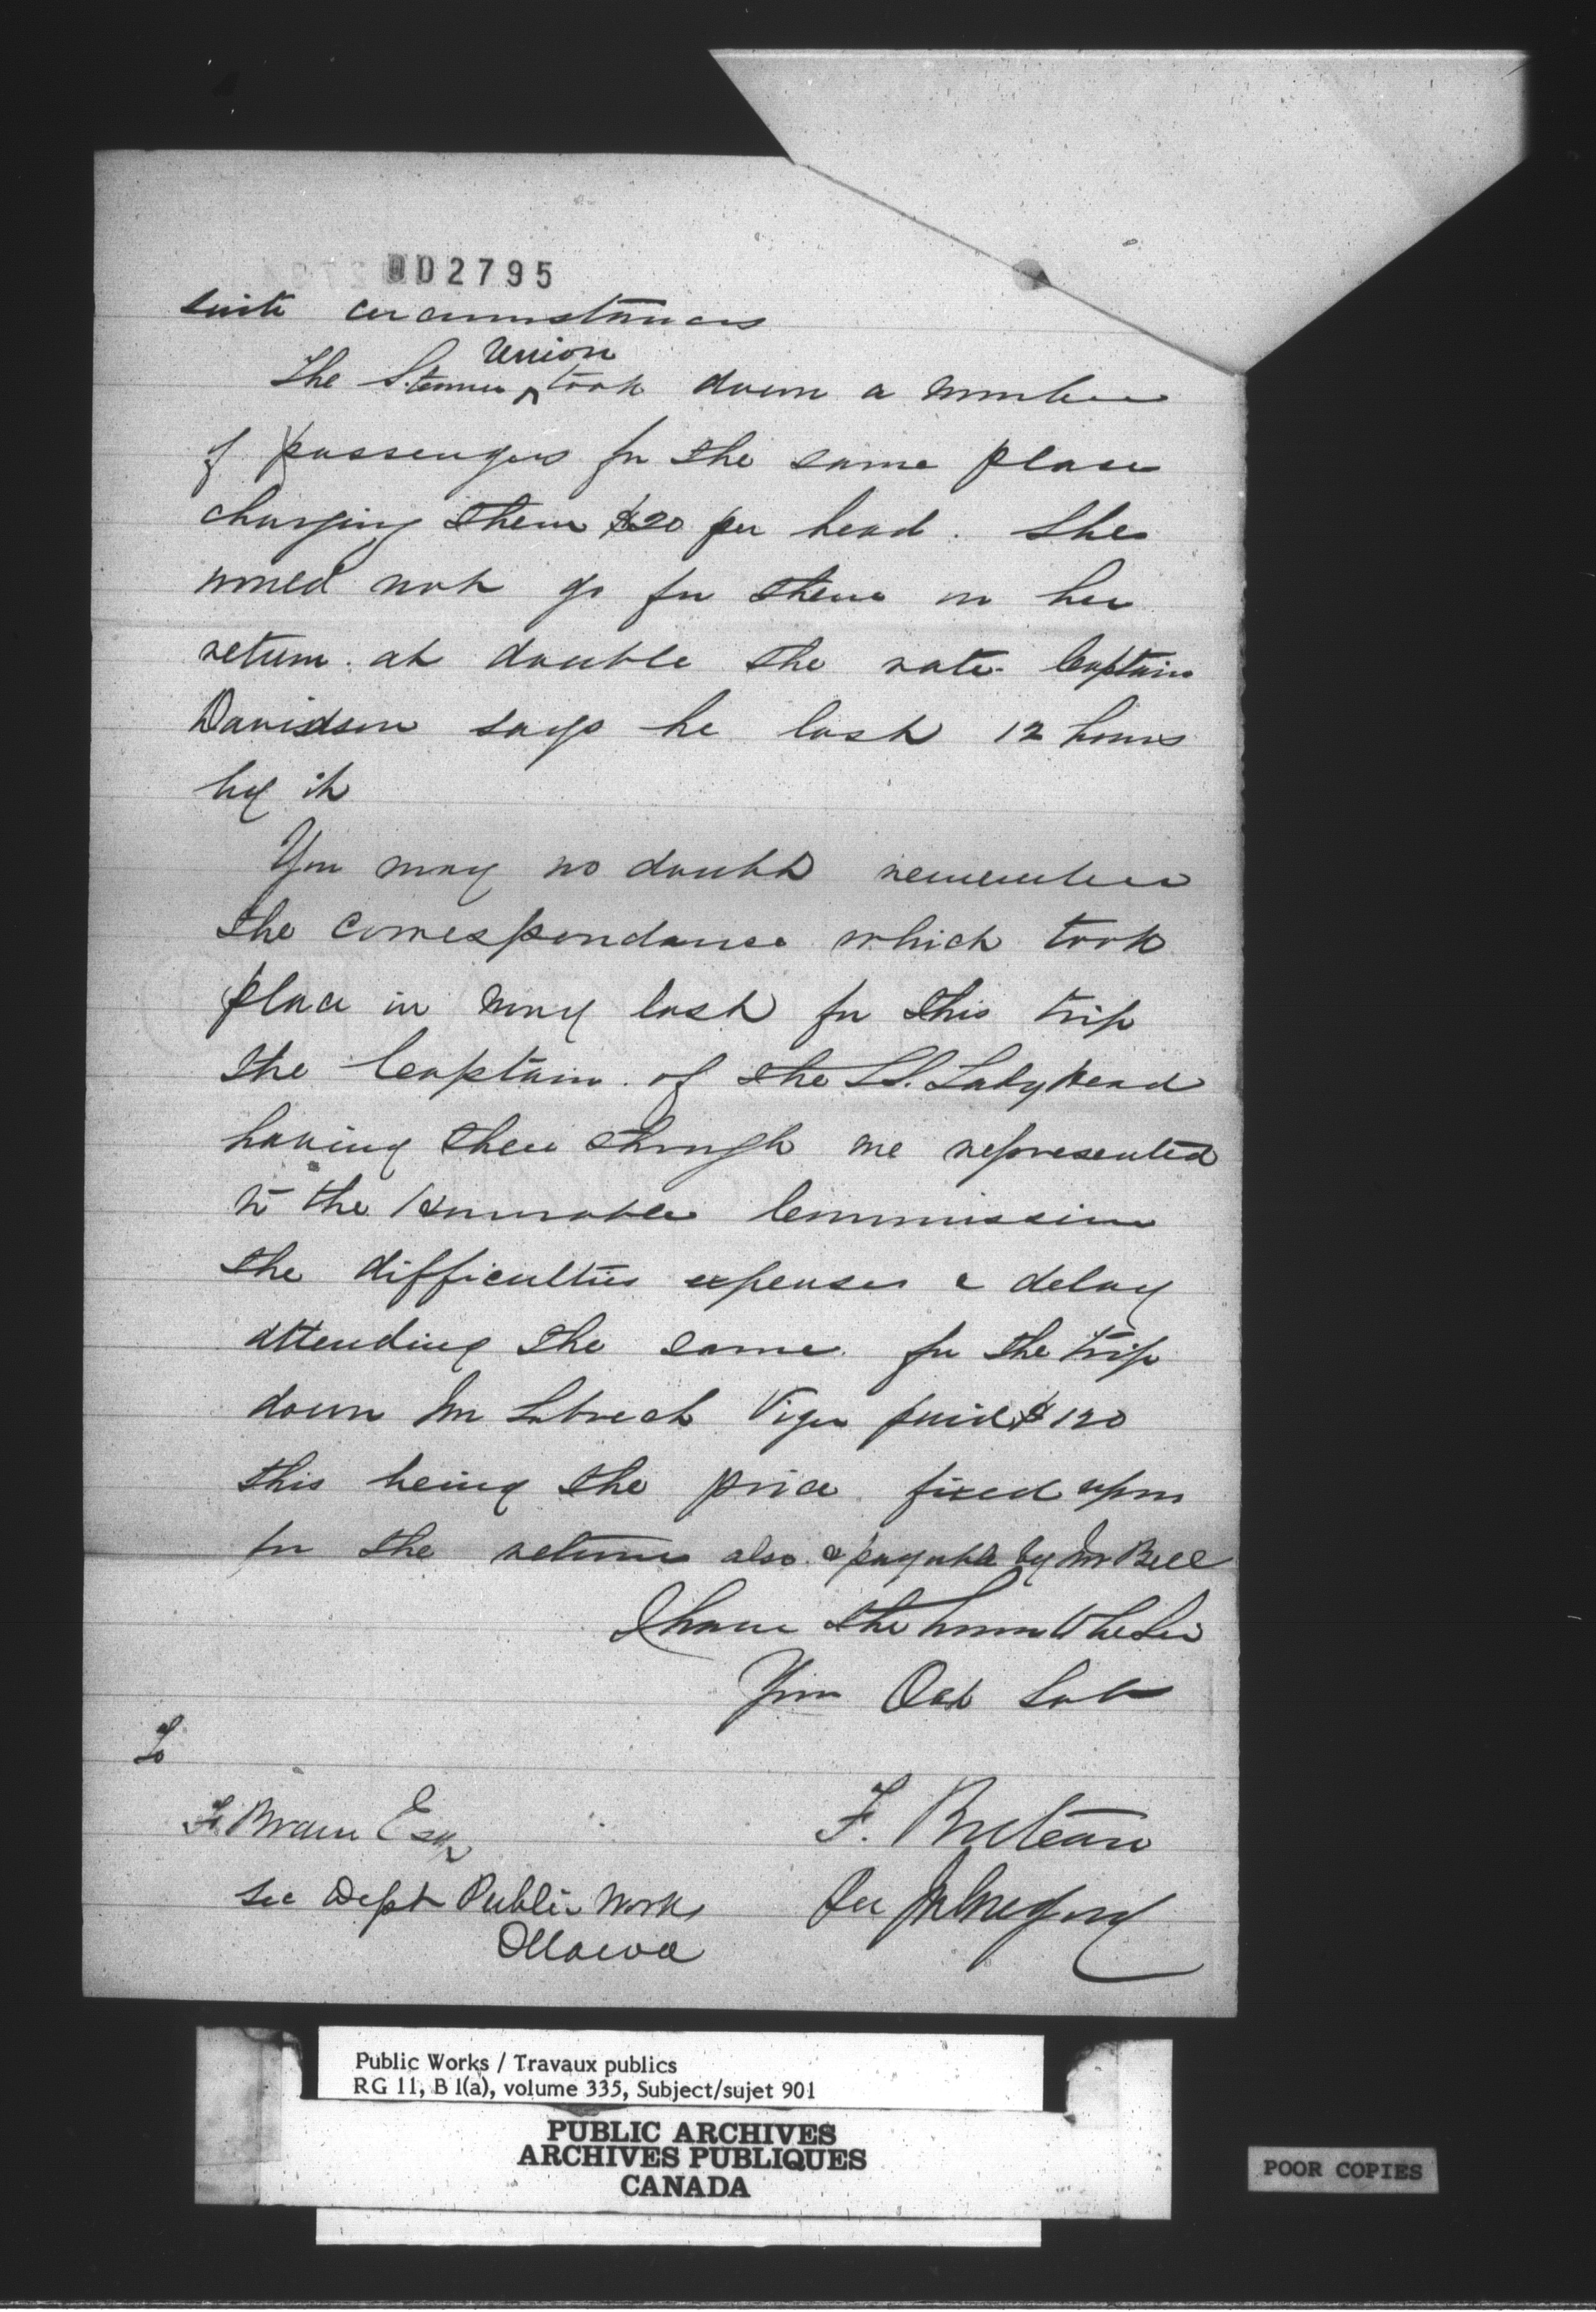 002795
suite circumstances
Union
The Steamer ^ took down a number
of passengers for the same place
charging them $20 per head. She
would not go for them on her
return at double the rate Captain
Davidson says he lost 12 hours
by it
You may no doubt remember
the correspondance which took
place in May last for this trip
the Captain of the SS. Lady Head
having then through me represented
to the Honorable Commission
the difficulties expenses & delay
attending the same for the trip
down Mr Viger paid $120
this being the price fixed upon
for the return also & payable by Mr Bell
I have the honor to be Sir
Your Obt Sert
To
F. Braun Esqr
Sec Dept Public Works
Ottawa
F. Buteau
Per
Public Works / Travaux publics
RG 11, B 1(a), volume 335, Subject/sujet 901
PUBLIC ARCHIVES
ARCHIVES PUBLIQUES
CANADA
POOR COPIES